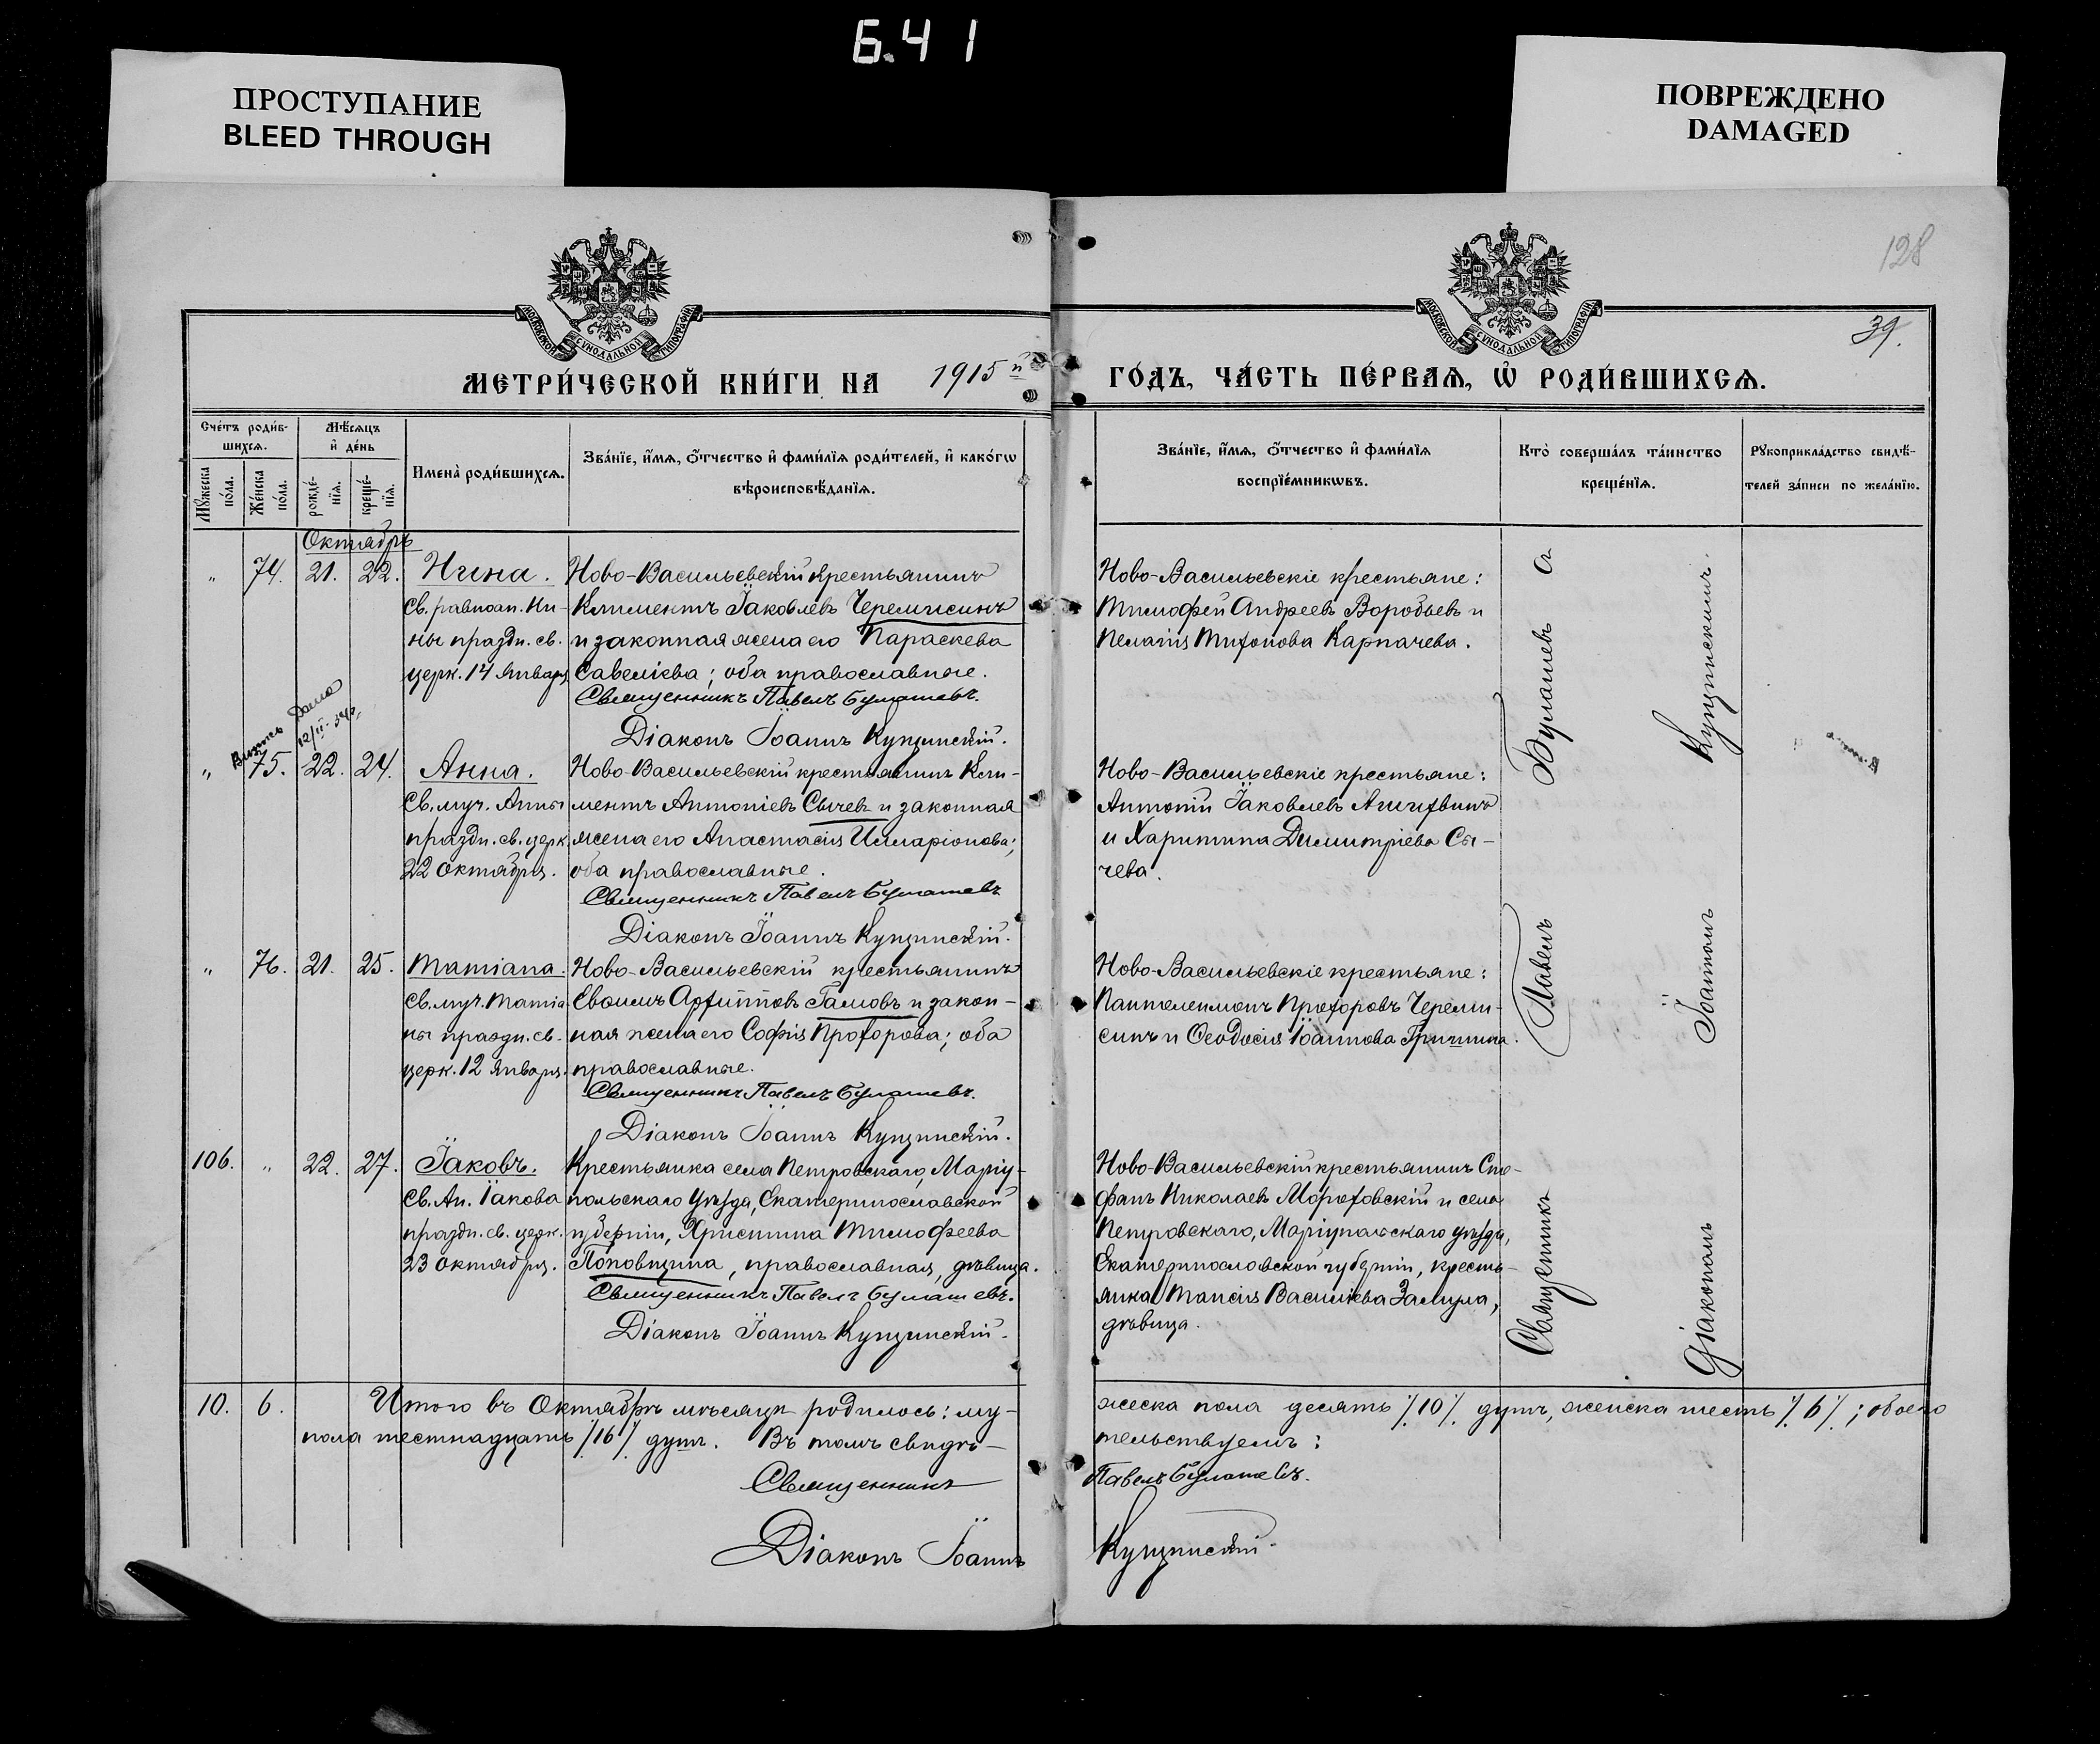 Б.41
ПРОСТУПАНИЕ
BLEED THROUGH
ПОВРЕЖДЕНО
DAMAGED
128
39.
МОСКОВСКОЙ СѴНОДАЛЬНОЙ ТИПОГРАФІИ
МОСКОВСКОЙ СѴНОДАЛЬНОЙ ТИПОГРАФІИ
МЕТРИ́ЧЕСКОЙ КНИ́ГИ НА 1915й ГО́ДЪ, ЧА́СТЬ ПЕ́РВАѦ, Ѽ РОДИ́ВШИХСѦ.
Сче́тъ роди́в-
шихсѧ.
Мѣ́сѧцъ
и҆ де́нь
Мꙋ́жеска
по́ла.
Же́нска
по́ла.
рожде́-
нїѧ.
креще́-
нїѧ.
Имена̀ роди́вшихсѧ.
Зва́нїе, и҆́мѧ, ѻ҆́тчество и҆ фами́лїѧ роди́телей, и҆ како́гѡ
вѣроисповѣ́данїѧ.
Зва́нїе, и҆́мѧ, ѻ҆́тчество и҆ фами́лїѧ
воспрїе́мникѡвъ.
Кто̀ соверша́лъ та́инство
креще́нїѧ.
Рꙋкоприкла́дство свидѣ́-
телей за́писи по жела́нїю.
Октябрь
„ 74. 21. 22. Нина.
Св. равноап. Ни-
ны праздн. св.
церк. 14 Января
Ново-Васильевскій крестьянинъ
Климентъ Іаковлевъ Черемисинъ
и законная жена его Параскева
Савеліева; оба православные.
Священникъ Павелъ Булашевъ.
Діаконъ Іоаннъ Купчинскій.
Ново-Васильевскіе крестьяне:
Тимофей Андреевъ Воробьевъ и
Пелагія Тихонова Карпачева.
12/II
„ 75. 22. 24. Анна.
Св. муч. Анны
праздн. св. церк.
22 октября.
Ново-Васильевскій крестьянинъ Кли-
ментъ Антоніевъ Сычевъ и законная
жена его Анастасія Илларіонова;
оба православные.
Священникъ Павелъ Булашевъ
Діаконъ Іоаннъ Купчинскій.
Ново-Васильевскіе крестьяне:
Антоній Іаковлевъ
и Харитина Димитріева Сы-
чева.
„ 76. 21. 25. Татіана.
Св. муч. Татіа-
ны праздн. св.
церк. 12 Января.
Ново-Васильевскій крестьянинъ
Архипповъ Гамовъ и закон-
ная жена его Софія Прохорова; оба
православные.
Священникъ Павелъ Булашевъ.
Діаконъ Іоаннъ Купчинскій.
Ново-Васильевскіе крестьяне:
Пантелеимонъ Прохоровъ Череми-
синъ и Феодосія Іоаннова Гришина.
106. „ 22. 27. Іаковъ.
Св. Ап. Іакова
праздн. св. церк.
23 октября.
Крестьянка села Петровскаго, Маріу-
польскаго уѣзда, Екатеринославской
губерніи, Христина Тимофеева
Поповщина, православная, дѣвица.
Священникъ Павелъ Булашевъ.
Діаконъ Іоаннъ Купчинскій.
Ново-Васильевскій крестьянинъ Сте-
фанъ Николаевъ Мороховскій и села
Петровскаго, Маріупольскаго уѣзда,
Екатеринославской губерніи, кресть-
янка Таисія Василіева Замула,
дѣвица.
Священникъ Павелъ Булашевъ съ
Діакономъ Іоанномъ Купчинскимъ.
10. 6. Итого въ Октябрѣ мѣсяцѣ родилось: му-
жеска пола десять /10/ душъ, женска шесть /6/; обоего
пола шестнадцать /16/ душъ. Въ томъ свидѣ-
тельствуемъ:
Священникъ Павелъ Булашевъ.
Діаконъ Іоаннъ Купчинскій.